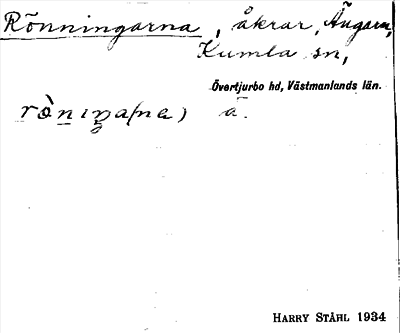 Rönningarna, åkrar, Ängarna,
Kumla sn,
Övertjurbo hd, Västmanlands län.
rò̱nɪŋa(na) ā.
HARRY STÅHL 1934